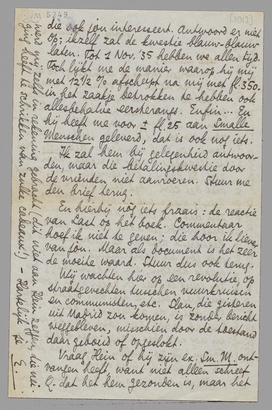 die ook jou interesseert. Antwoord er niet
op; ik zelf zal de kwestie blauw-blauw
laten. Tot 1 Nov. 35 hebben we allen tijd.
Toch lijkt me de manier, waarop hij mij
met 12½ % afscheept na mij met fl. 350.
in het zaakje betrokken te hebben ook
allesbehalve eershalve. Enfin... En
hij heeft me voor 1 fl. 25 aan Smalle
Menschen geleverd, dat is ook nog iets.
Ik zal hem bij gelegenheid antwoor-
den, maar de betalingskwestie door
de vrienden niet aanroeren. Stuur me
den brief terug.
En hierbij nog iets fraais: de reactie
van Last op het boek. Commentaar
hoef ik niet te geven; die hoor ik liever
van jou. Maar het document is het zeer
de moeite waard. Stuur dus ook terug.
Wij wachten hier op een revolutie, op
straatgevechten tusschen
en communisten, etc. Clan, die gisteren
uit Madrid zou komen, is zonder bericht
weggebleven, misschien door de toestand
daar gedoold of opgelokt.
Vraag Hein of hij zijn ex. Sm. M. ont-
vangen heeft, want niet alleen schreef
Q. dat het hem gezonden is, maar het
werd mij zelfs in rekening gebracht, die niet aan Hein zelf, die nie-
mand heeft te schrikken van zulke gebaren!) – Hartelijk je
E.